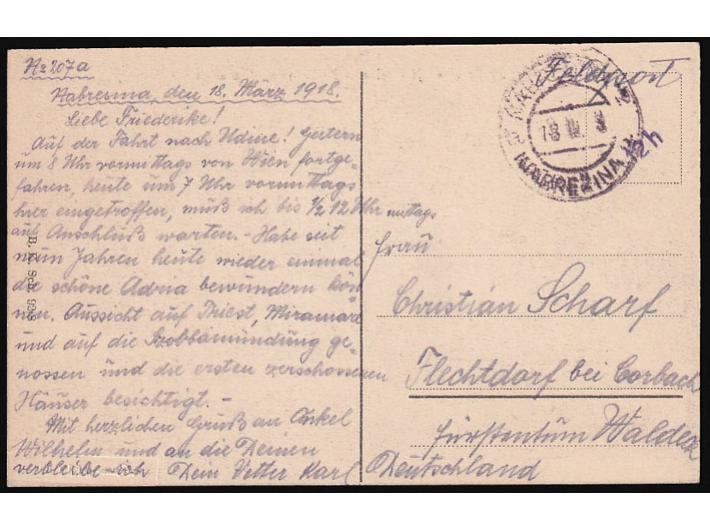 No 207a
Nabresina, den 18. März 1918.
Liebe Friederike!
Auf der Fahrt nach Udine! Gestern
um 8 Uhr vormittags von Wien fortge-
fahren, heute um 7 Uhr vormittags
hier eingetroffen, muß ich bis 1/2 12 Uhr mittags
auf Anschluß warten. - Habe seit
neun Jahren heute wieder einmal
die schöne Adria bewundern kön
nen. Aussicht auf Triest, Miramare
und auf die Isobbamündung ge-
nossen und die ersten zerschossenen
Häuser besichtigt. -
Mit herzlichen Gruß an Onkel
Wilhelm und an die Deinen
verbleibe ich Dein Vetter Karl
B. K. Sch. 938
Feldpost
18 III 8
NABRESINA
12h
Frau
Christian Scharf
Flechtdorf bei Corbach
Fürstentum Waldeck
Deutschland